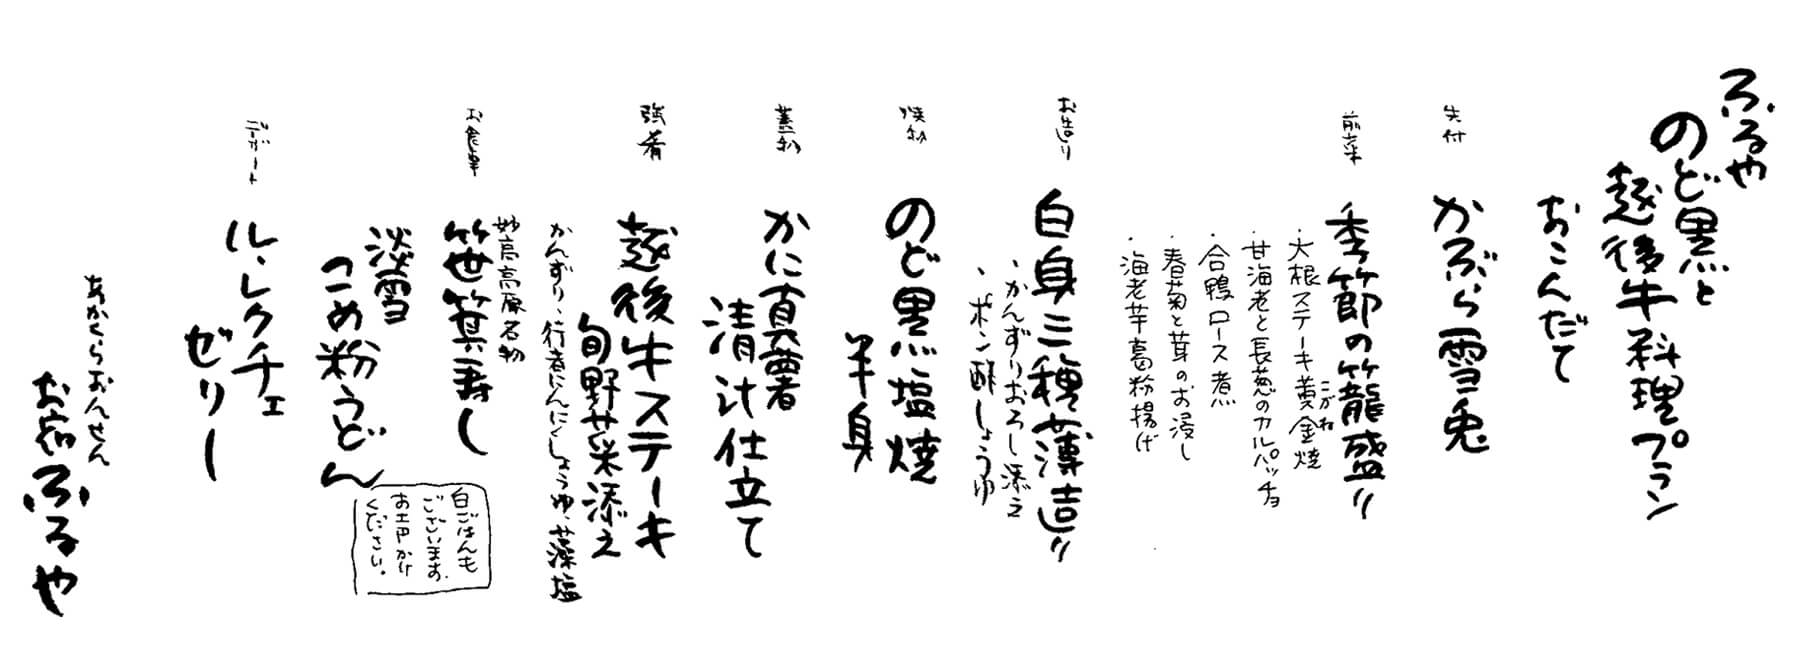 ふるや
のど黒と
越後牛料理プラン
おこんだて
先付
かぶら雪兎
前菜
季節の籠盛り
・大根ステーキ黄金焼
こがね
・甘海老と長葱のカルパッチョ
・合鴨ロース煮
・春菊と茸のお浸し
・海老芋葛粉揚げ
お造り
白身三種薄造り
・かんずりおろし添え
・ポン酢しょうゆ
焼物
のど黒塩焼
半身
蒸物
かに真薯
清汁仕立て
強肴
越後牛ステーキ
旬野菜添え
かんずり、行者にんにくしょうゆ、藻塩
お食事
妙高高原名物
笹箕寿し
淡雪
こめ粉うどん
白ごはんも
ございます。
お声かけ
ください。
デザート
ル・レクチェ
ゼリー
あかくらおんせん
お宿ふるや